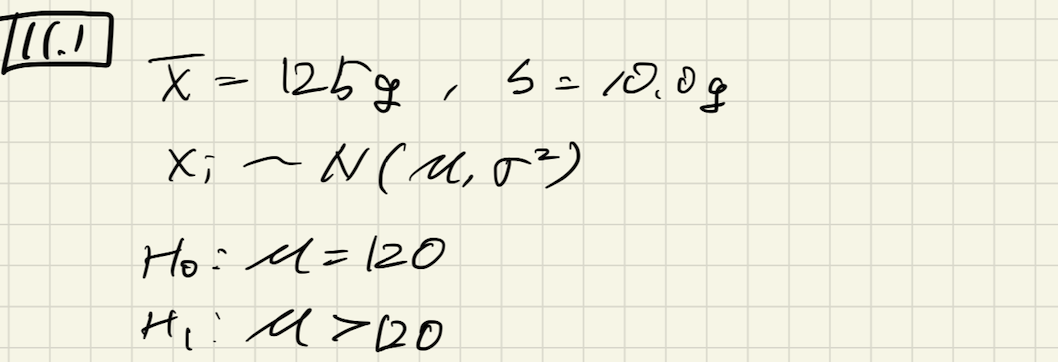 11.1
X̄ = 125g, S = 10.0g
Xᵢ ~ N(μ, σ²)
H₀: μ = 120
H₁: μ > 120